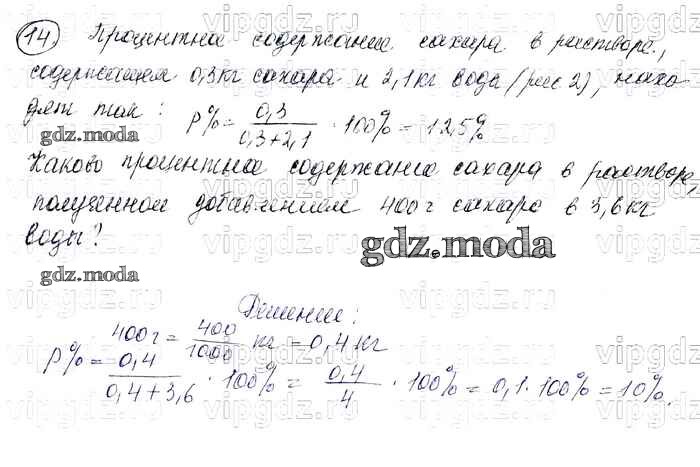 14. Процентное содержание сахара в растворе,
содержащем 0,3 кг сахара и 2,1 кг воды (рис 2), нахо
дят так: p% = 0,3 / (0,3+2,1) · 100% = 12,5%
gdz.moda
Каково процентное содержание сахара в растворе,
полученном добавлением 400 г сахара в 3,6 кг
воды?
gdz.moda
gdz.moda
Решение:
400 г = 400/1000 кг = 0,4 кг
p% = 0,4 / (0,4+3,6) · 100% = 0,4/4 · 100% = 0,1 · 100% = 10%.
vipgdz